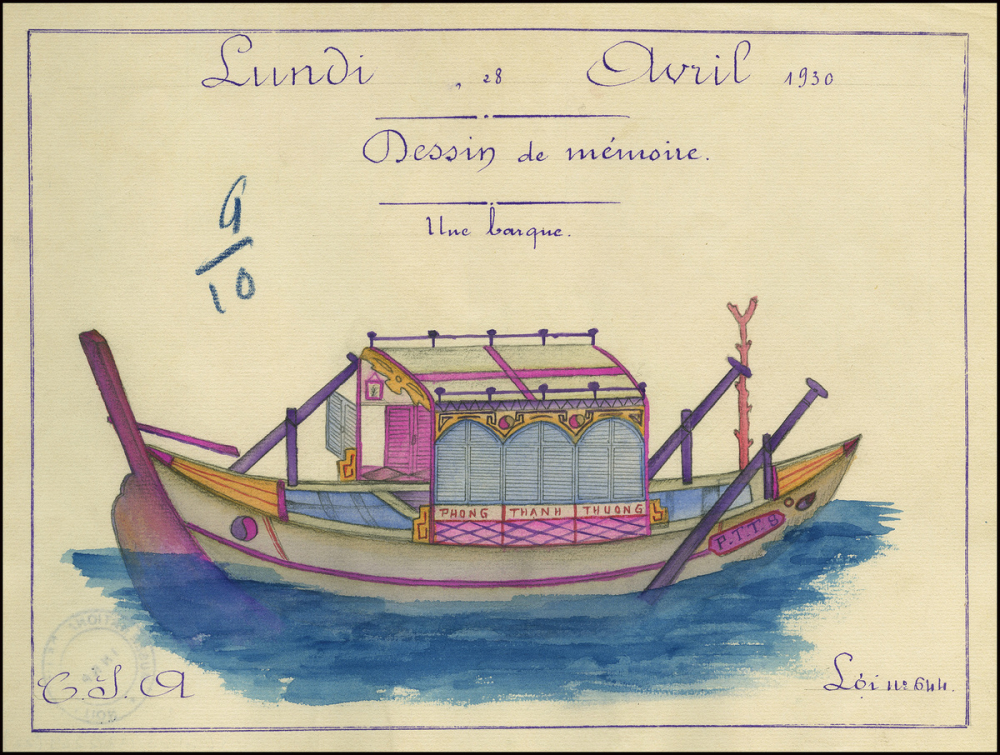 Lundi, 28 Avril 1930
Dessin de mémoire.
Une barque.
9/10
PHONG THANH THUONG
P.T.T.8
C.S.A
Lôi nº 644.